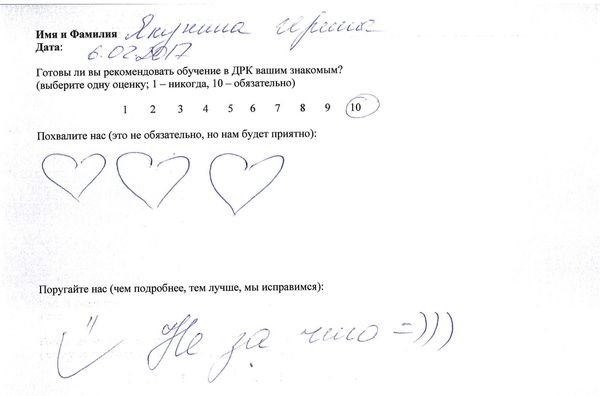 Имя и Фамилия Якунина Ирина
Дата: 6.02.2017
Готовы ли вы рекомендовать обучение в ДРК вашим знакомым?
(выберите одну оценку; 1 – никогда, 10 – обязательно)
1 2 3 4 5 6 7 8 9 10
Похвалите нас (это не обязательно, но нам будет приятно):
Поругайте нас (чем подробнее, тем лучше, мы исправимся):
Не за что =)))